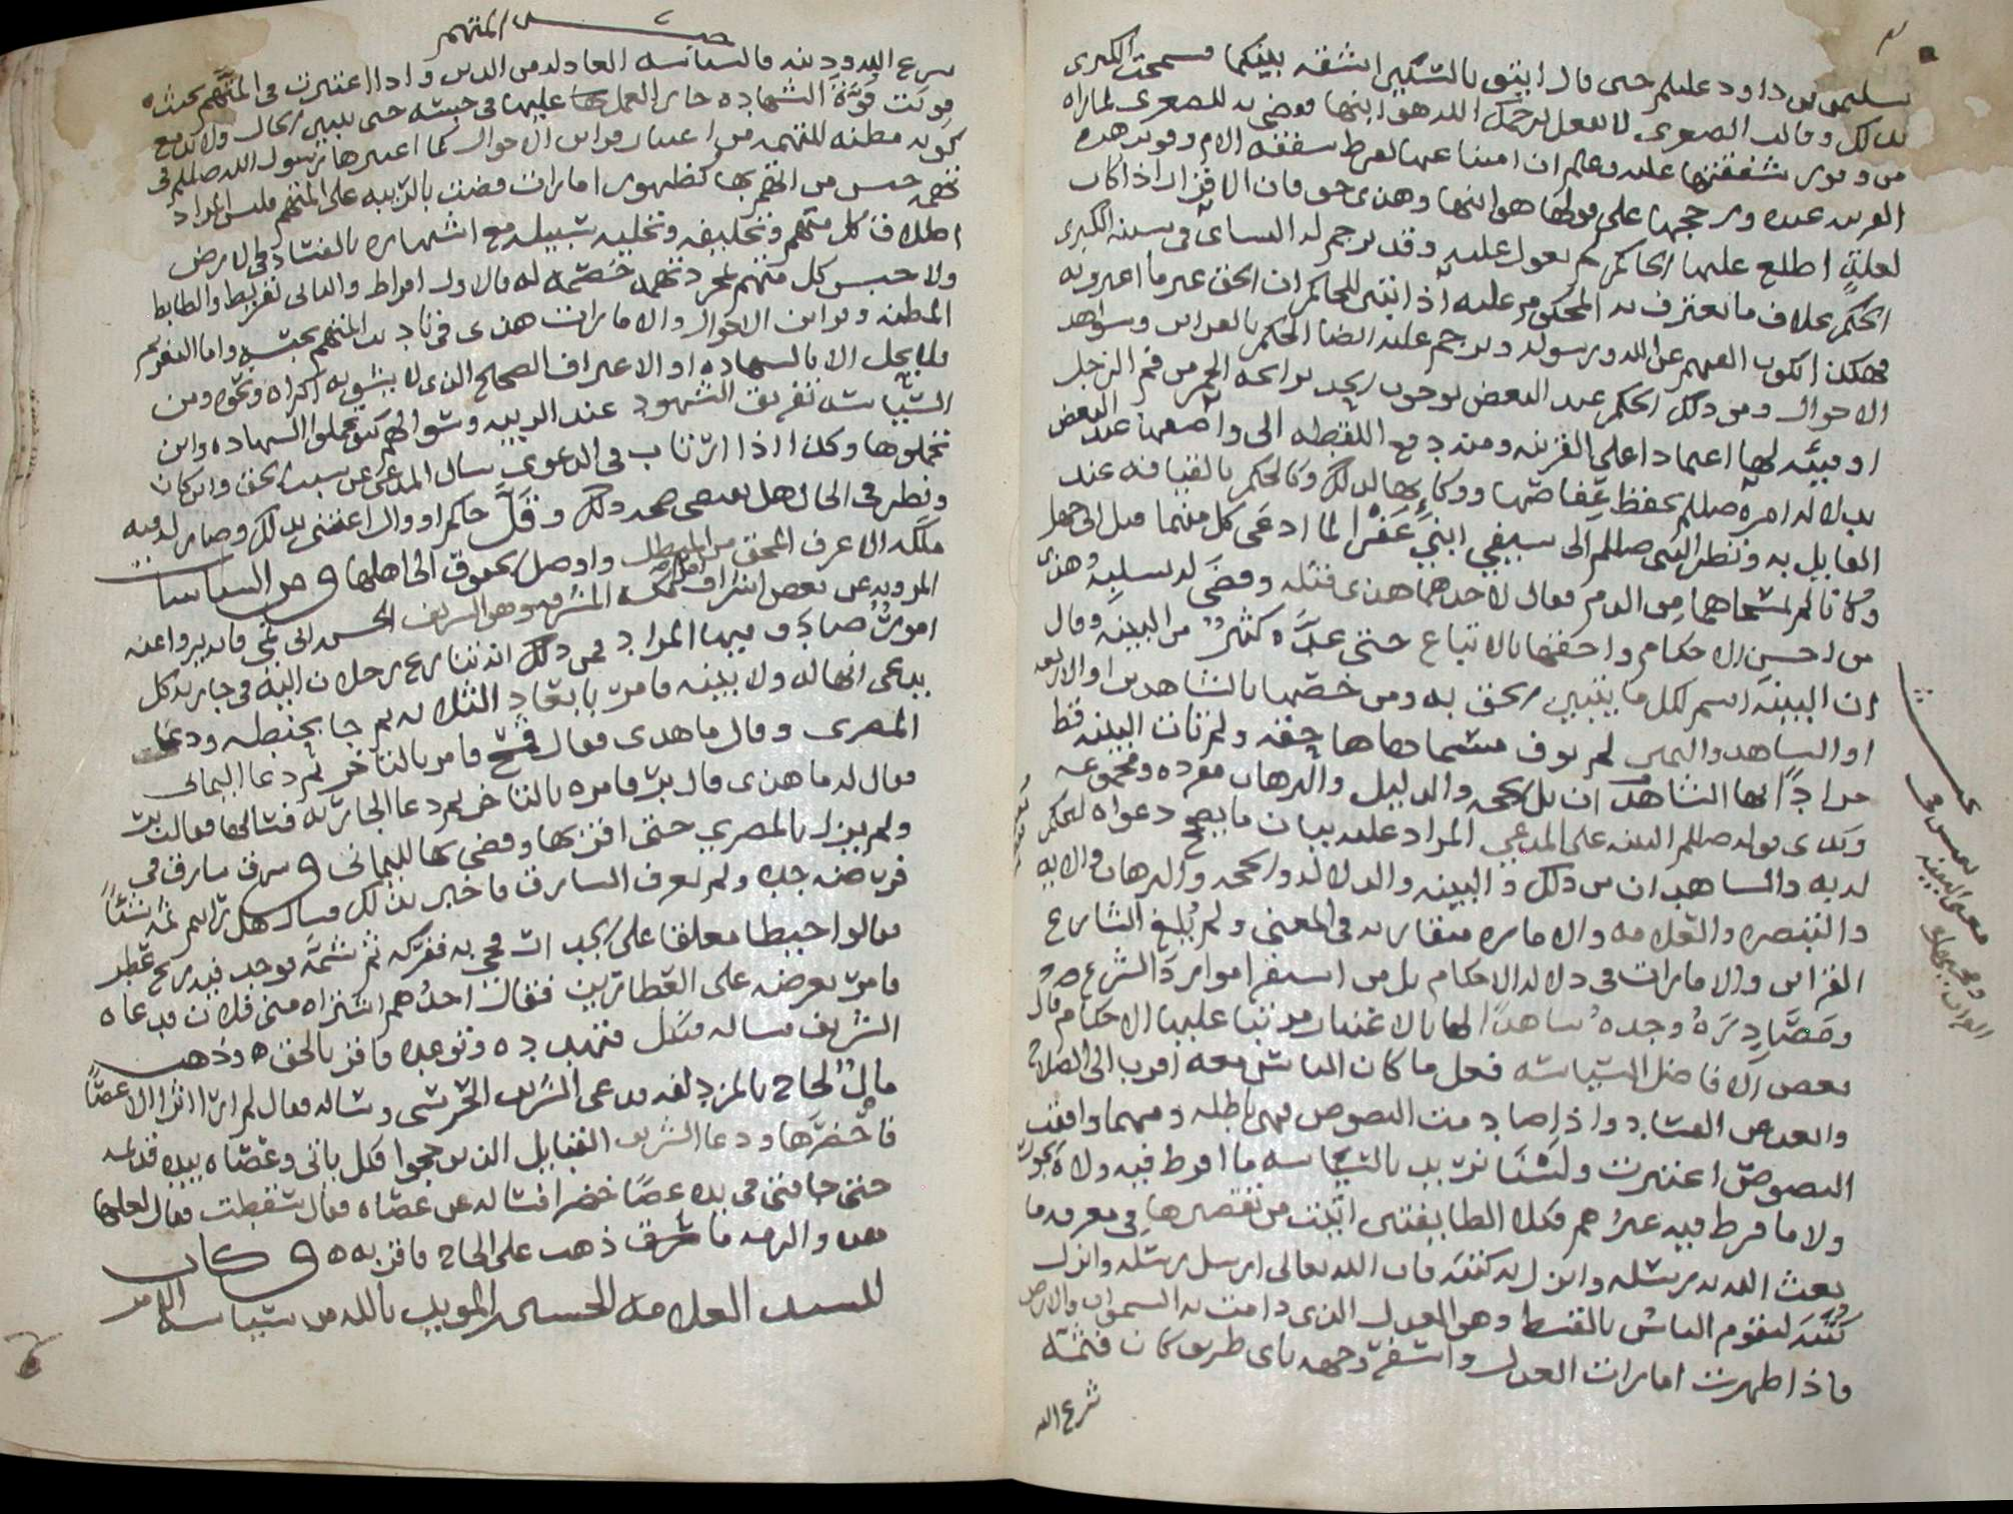 سليمن بن داود عليلم حتى قال ايتوني بالسكين اشقه بينكما فسمحت الكبرى
بذلك وقالت الصغرى لا تفعل يرحمك الله هو ابنها فقضى به للصغرى لما راه
من قوى شفقتها عليه وعلم ان امتناعها لفرط شفقة الام وقويت هذه
القرينه عنده ورجحها على قولها هو ابنها وهذى حق فان الاقرار اذا كان
لعلة اطلع عليها الحاكم لم يعول عليه وقد ترجم له النساى في سننه الكبرى
الحكم بخلاف ما يعترف به المحكوم عليه اذا تبين للحاكم ان الحق غير ما اعترف به
فهكذا يكون الفهم عن الله ورسوله وترجم عليه ايضا الحكم بالقراين وشواهد
الاحوال ومن ذلك الحكم عند البعض بوجوب الحد برائحة الخمر من فم الرجل
او قيئه لها اعتمادا على القرينه ومنه دفع اللقطه الى واصفها عند البعض
بدلاله امره صللم بحفظ عفاصها ووكاءها لذلك وكالحكم بالقيافه عند
القايل به ونظر النبي صللم الى سيفي ابني عفرا لما ادعى كل منهما قتل ابي جهل
وكانا لم يمسحاهما من الدم فقال لاحدهما هذى قتله وقضى له بسلبه وهذى
من احسن الاحكام واحقها بالاتباع حتى عده كثير من البينه وقال
ان البينه اسم لكل ما يتبين الحق به ومن خصها بالشاهدين او الاربعه
او الشاهد واليمين لم يوف مسماها حقه ولم تات البينه قط
مرادا بها الشاهدان بل الحجه والدليل والبرهان مفرده ومجموعه
وكذى قوله صللم البينه على المدعي المراد عليه بيان ما يصحح دعواه ليحكم
له به والشاهدان من ذلك والبينه والدلاله والحجه والبرهان والايه
والتبصره والعلامه والاماره متقاربه في المعنى ولم يلغ الشارع
القراين والامارات في دلاله الاحكام بل من استقرا موارد الشرع
ومصادره وجده شاهدا لها بالاعتبار مرتبا عليها الاحكام قال
بعض الافاضل السياسه فعل ما كان الناس معه اقرب الى الصلاح
وابعد عن الفساد واذا صادمت النصوص فهي باطله ومهما وافقت
النصوص اعتبرت ولسنا نريد بالسياسه ما افرط فيه ولاة الجور
ولا ما فرط فيه غيرهم فكلا الطايفتين اتيت من تقصيرها في معرفه ما
بعث الله به رسله وانزل به كتبه فان الله تعالى ارسل رسله وانزل
كتبه ليقوم الناس بالقسط وهو العدل الذي قامت به السموات والارض
فاذا ظهرت امارات العدل واسفر وجهه باى طريق كان فثمه
شرع الله
معنى البينه
شرع الله ودينه فالسياسه العادله من الدين واذا اعتبرت في المتهم بحيث
قويت قوة الشهاده جاز العمل عليها في حبسه حتى يتبين الحال ولا بد مع
كونه مظنه للتهمه من اعتبار قراين الاحوال كما اعتبرها رسول الله صللم في
تهمه حبس من اتهم بها كظهور امارات قضت بالريبه على المتهم فليس المراد
اطلاق كل متهم وتحليفه وتخليه سبيله مع اشتهاره بالفساد في الارض
ولا حبس كل متهم بمجرد تهمه خصمه له فالاول افراط والثاني تفريط والضابط
المظنه وقراين الاحوال والامارات هذى في تاديب المتهم بحبسه واما التغريم
فلا يحل الا بالشهاده او الاعتراف الصحيح الذى لا يشوبه اكراه ونحوه ومن
السياسه تفريق الشهود عند الريبه وسؤالهم كيف تحملوا الشهاده واين
تحملوها وكذا اذا ارتاب في الدعوى سال المدعى عن سبب الحق واين كان
ونظر في الحال هل يقتضى صحه ذلك وقل حاكم او وال اعتنى بذلك وصار له فيه
ملكه الا عرف المحق من المبطل واوصل الحقوق الى اهلها ومن السياسات
المرويه عن بعض اشراف مكه المشرفه وهو الشريف الحسن بن ابي نمي
امور صادف فيها المراد فمن ذلك انه تنازع رجلان اليه في جاريه كل
يدعى انها له ولا بينه فامر بابعاد الثلاثه ثم جا بحنطه ودعا
المصرى وقال ما هذى فقال قمح فامر بالتاخر ثم دعا اليماني
فقال له ما هذى قال بر فامره بالتاخر ثم دعا الجاريه فسالها فقالت بر
ولم يزل بالمصري حتى اقر بها وقضى بها لليماني وسرق سارق في
فرضه جده ولم يعرف السارق فاخبر بذلك فسال هل تراهم ثمه شيئا
قالوا حبطا معلقا على الجدار فجي به ففركه ثم شمه فوجد فيه ريح عطر
فامر بعرضه على العطارين فقال احدهم اشتراه مني فلان فدعاه
الشريف فساله فنكل فتهدده وتوعده فاقر بالحق وذهب
مال لحاج بالمزدلفه فدعى الشريف الحرسي وساله فقال لم ار اثرا الا عصا
فاحضرها ودعا الشريف القبايل الذين حجوا فكل ياتي وعصاه بيده
حتى جا فتى في يده عصا خضرا فساله عن عصاه فقال سقطت فقال لعلها
هذه والزمه ما سرق ذهب على الحاج فاقر به وكان
للسيد العلامه الحسين المويد بالله من سياسه الامر